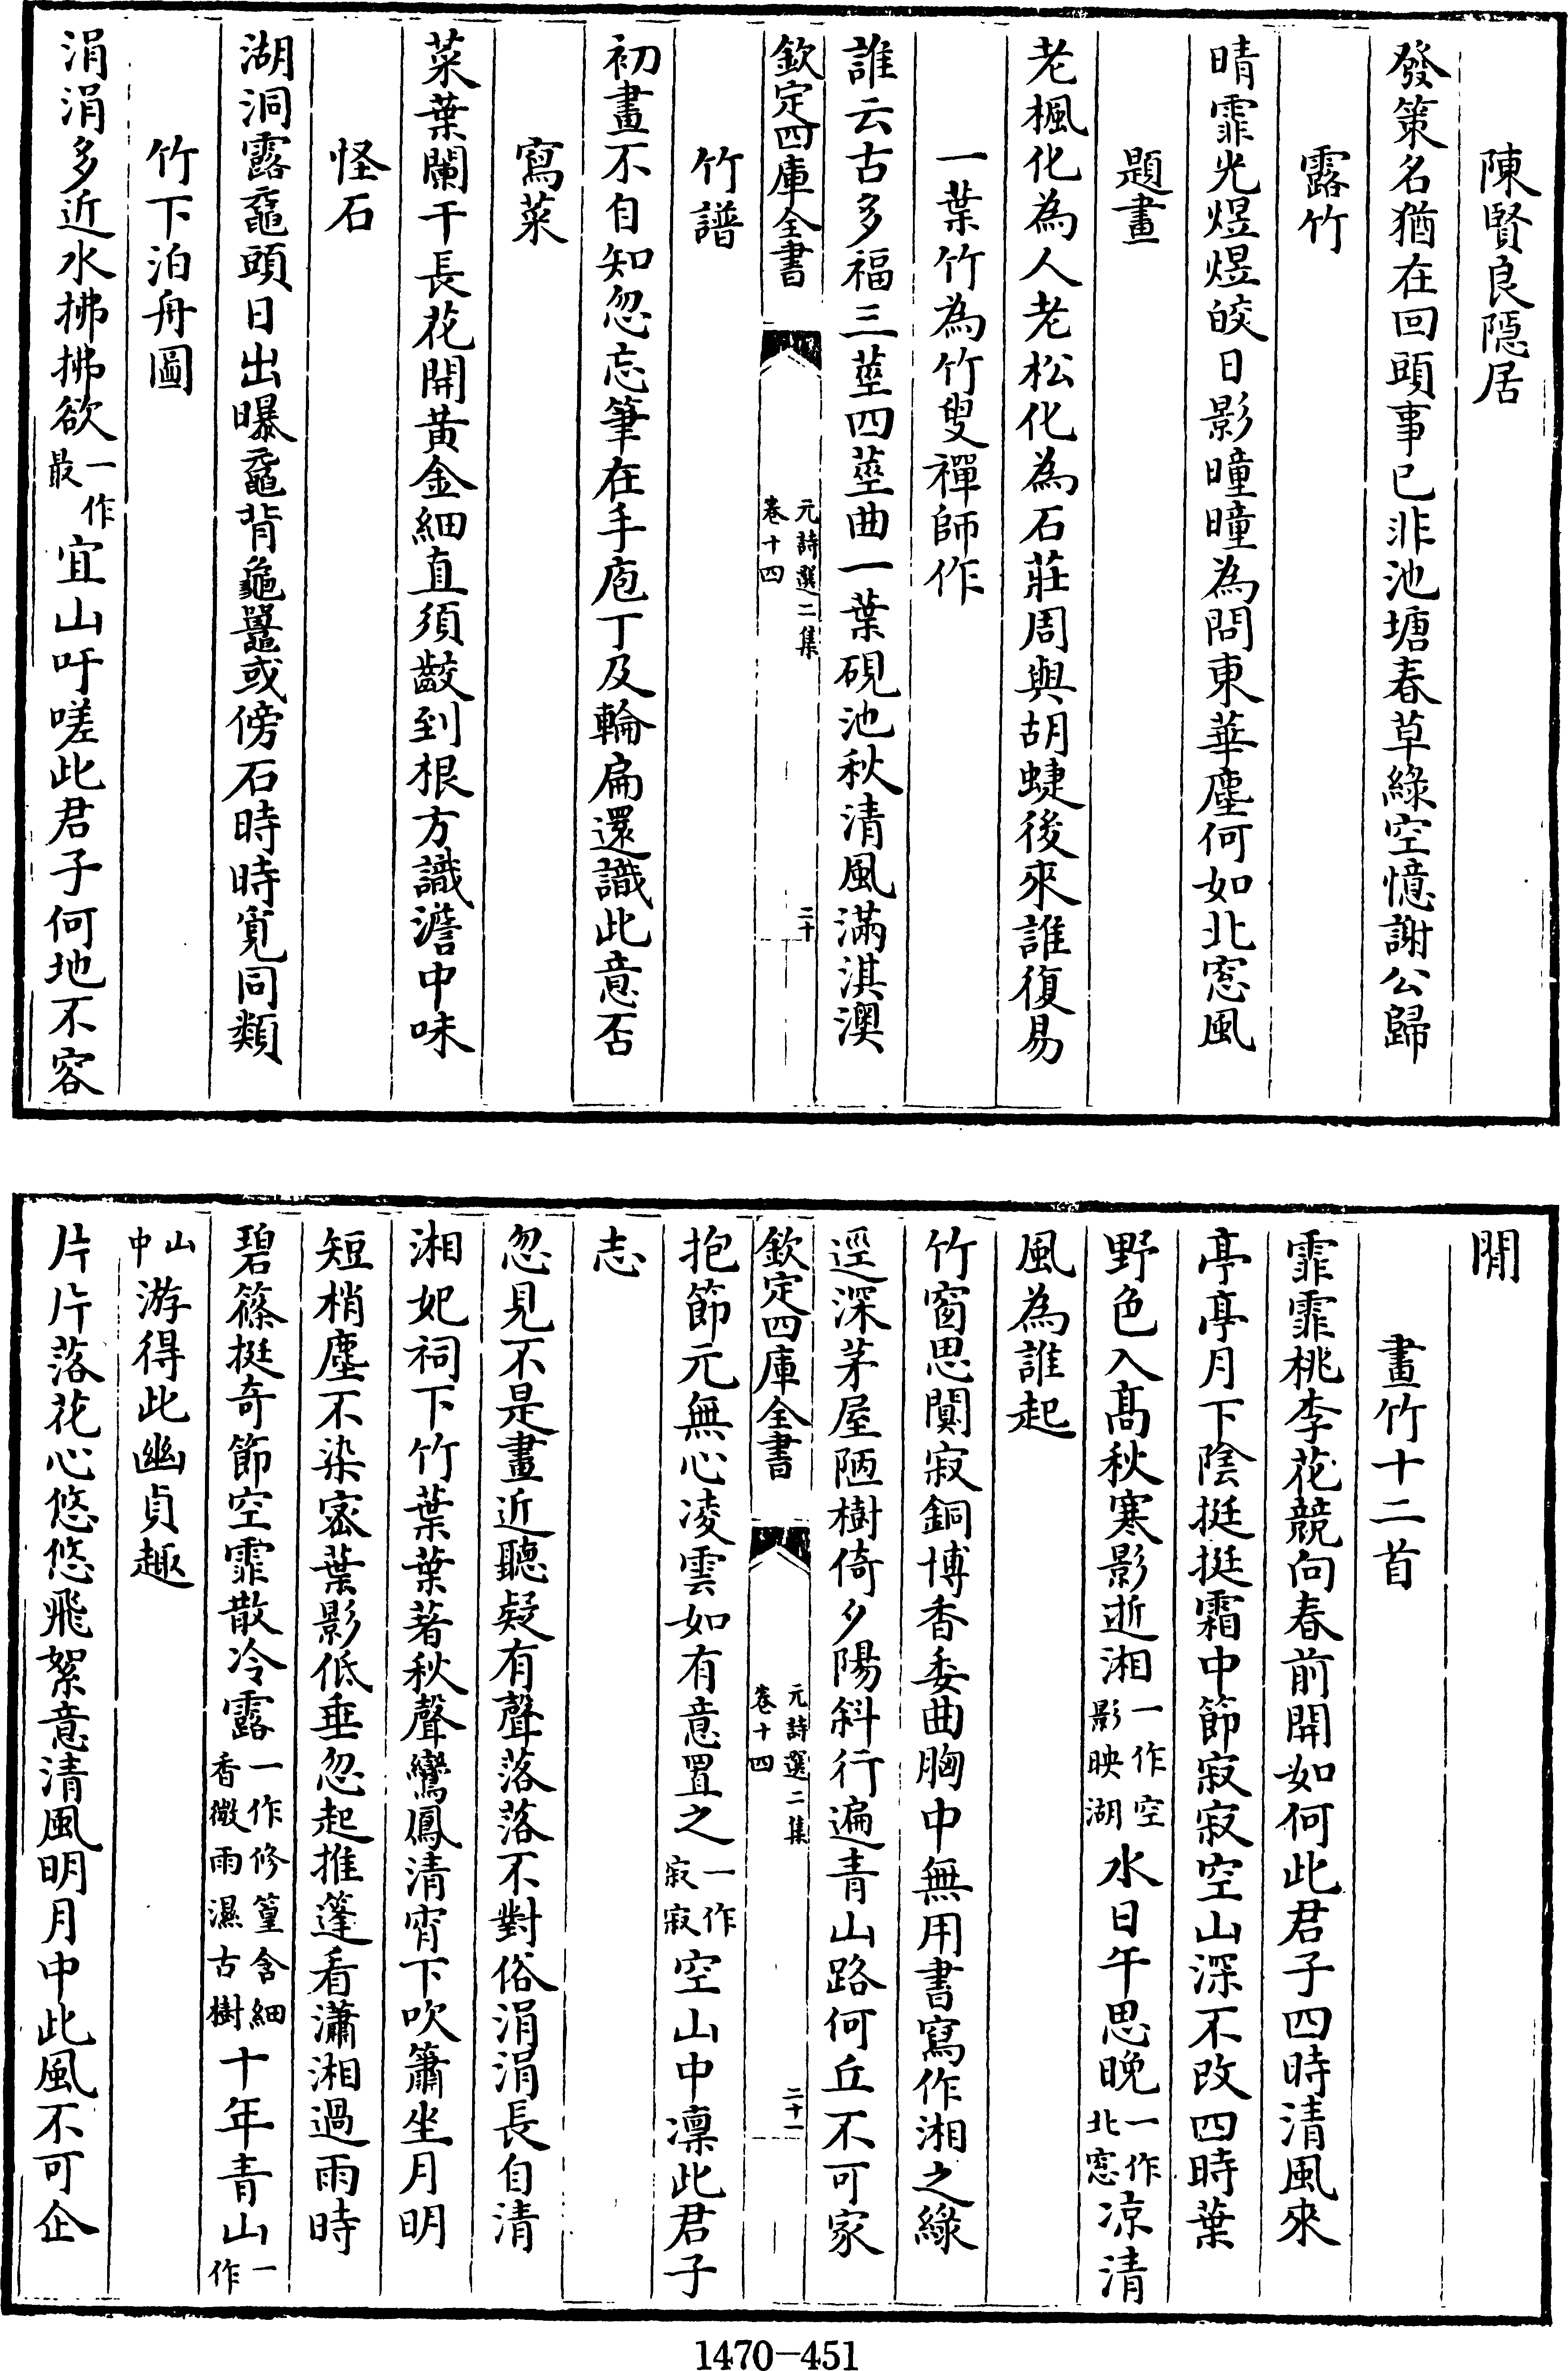 陳賢良隱居
發策名猶在回頭事已非池塘春草綠空憶謝公歸
露竹
晴霏光煜煜皎日影曈曈為問東華塵何如北窓風
題畫
老楓化為人老松化為石莊周與胡蜨後來誰復易
一葉竹為竹叟禪師作
誰云古多福三莖四莖曲一葉硯池秋清風滿淇澳
欽定四庫全書
元詩選二集
卷十四
二十
竹譜
初畫不自知忽忘筆在手庖丁及輪扁還識此意否
寫菜
菜葉闌干長花開黄金細直須齩到根方識澹中味
怪石
湖洞露黿頭日出曝黿背龜鼉或傍石時時覓同類
竹下泊舟圖
涓涓多近水拂拂欲一作最宜山吁嗟此君子何地不容
閒
畫竹十二首
霏霏桃李花競向春前開如何此君子四時清風來
亭亭月下陰挺挺霜中節寂寂空山深不改四時葉
野色入髙秋寒影逝湘一作空影映湖水日午思晚一作北窓涼清
風為誰起
竹窗思闃寂銅博香委曲胸中無用書寫作湘之綠
逕深茅屋陋樹倚夕陽斜行遍青山路何丘不可家
欽定四庫全書
元詩選二集
卷十四
二十一
抱節元無心凌雲如有意置之一作寂寂空山中凛此君子
志
忽見不是畫近聽疑有聲落落不對俗涓涓長自清
湘妃祠下竹葉葉著秋聲鸞鳳清宵下吹簫坐月明
短梢塵不染宻葉影低垂忽起推篷看瀟湘過雨時
碧篠挺奇節空霏散冷露一作修篁含細香微雨濕古樹十年青山一作
山中游得此幽貞趣
片片落花心悠悠飛絮意清風明月中此風不可企
1470-451